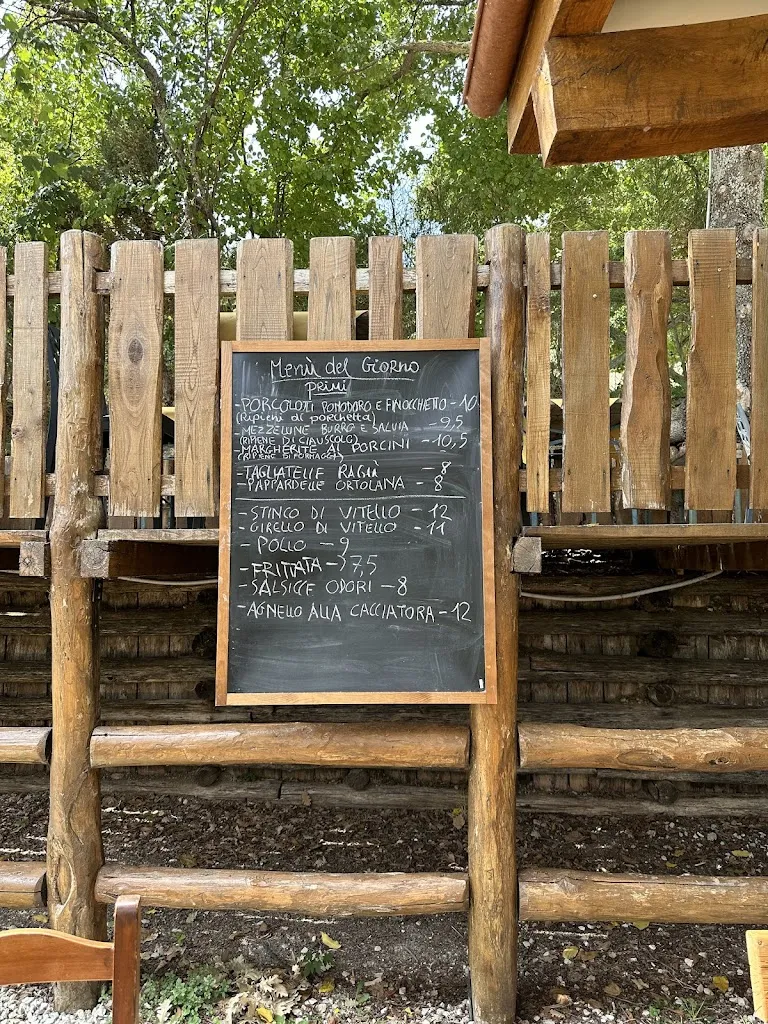 Menù del Giorno
primi
- PORCOLOTTI POMODORO E FINOCCHIETTO - 10
(Ripieni di porchetta)
- MEZZELUNE BURRO E SALVIA - 9,5
(RIPIENE DI CIAUSCOLO)
- MARGHERITE AI PORCINI - 10,5
(RIPIENE DI FORMAGGI)
- TAGLIATELLE RAGÙ - 8
- PAPPARDELLE ORTOLANA - 8
- STINCO DI VITELLO - 12
- GIRELLO DI VITELLO - 11
- POLLO - 9
- FRITTATA - 7,5
- SALSICCE ODORI - 8
- AGNELLO ALLA CACCIATORA - 12